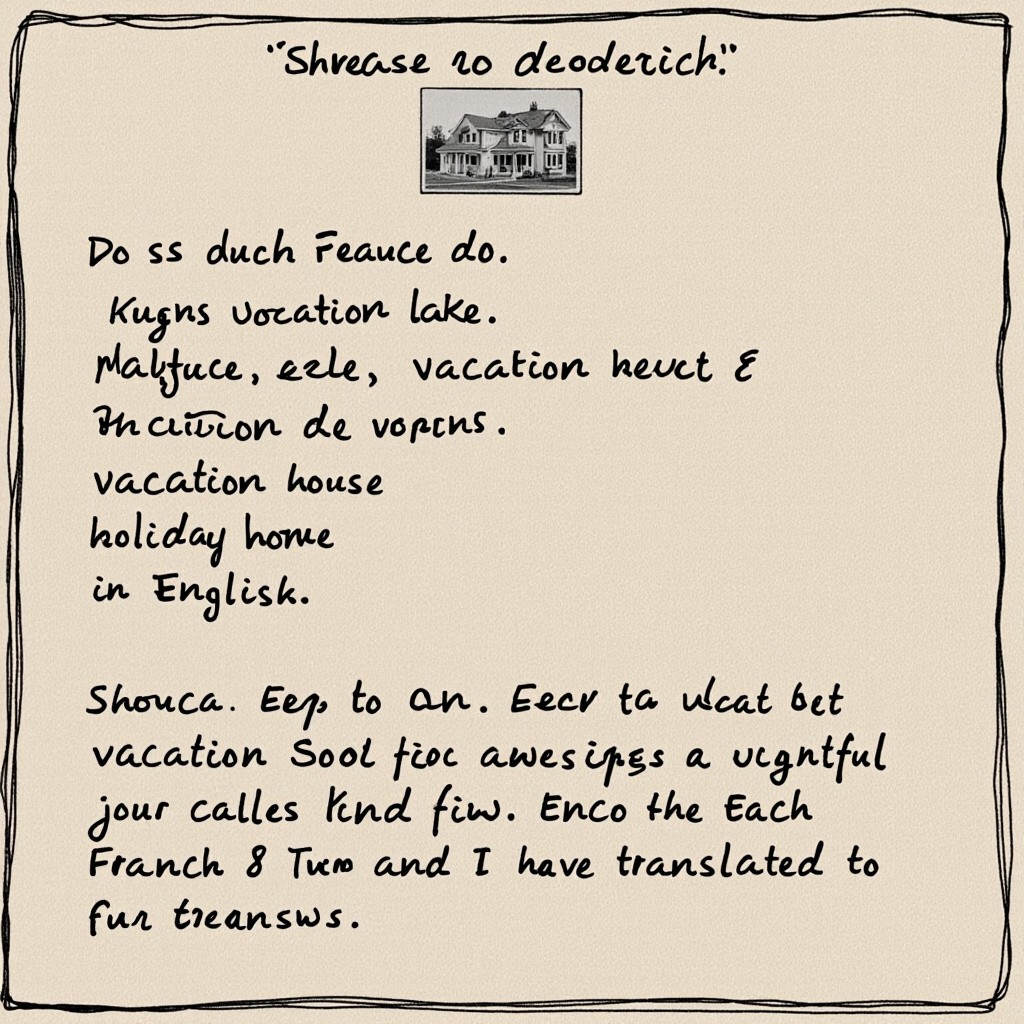 "Shrease ro deoderich."
Do ss duch Feauce do.
Kugns vocation lake.
Malfuce, ezle, vacation heuct &
de vopcns.
vacation house
holiday home
in Englisk.
Shouca. Eep to an. Eecr ta bet
vacation Sool fioc a
jour calles Kind fiw. Enco the Each
Franch & and I have translated to
fur treansws.